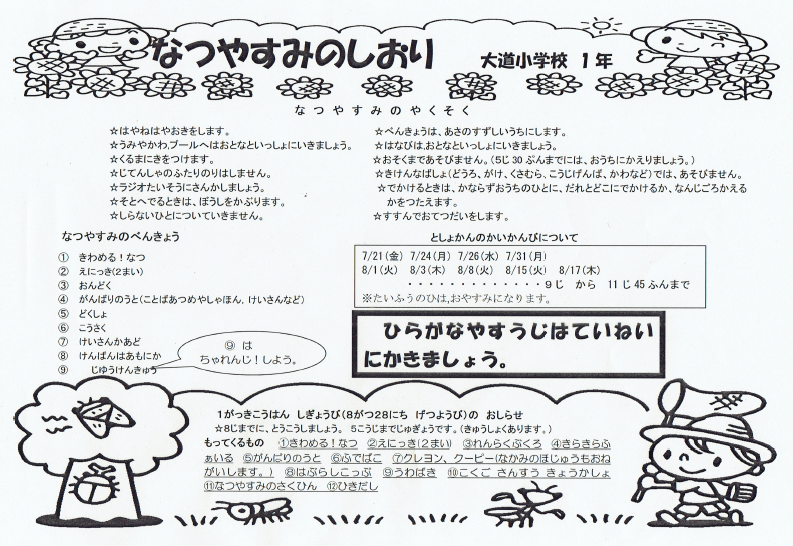 なつやすみのしおり　大道小学校　1年
なつやすみのやくそく
☆はやねはやおきをします。
☆うみやかわ,プールへはおとなといっしょにいきましょう。
☆くるまにきをつけます。
☆じてんしゃのふたりのりはしません。
☆ラジオたいそうにさんかしましょう。
☆そとへでるときは、ぼうしをかぶります。
☆しらないひとについていきません。
☆べんきょうは、あさのすずしいうちにします。
☆はなびは,おとなといっしょにいきましょう。
☆おそくまであそびません。(5じ30ぷんまでには、おうちにかえりましょう。)
☆きけんなばしょ(どうろ、がけ、くさむら、こうじげんば、かわなど)では、あそびません。
☆でかけるときは、かならずおうちのひとに、だれとどこにでかけるか、なんじごろかえる
かをつたえます。
☆すすんでおてつだいをします。
なつやすみのべんきょう
① きわめる！なつ
② えにっき(2まい)
③ おんどく
④ がんばりのうと(ことばあつめやしゃほん,けいさんなど)
⑤ どくしょ
⑥ こうさく
⑦ けいさんかあど
⑧ けんばんはあもにか
⑨ じゆうけんきゅう
⑨ は
ちゃれんじ！しよう。
としょかんのかいかんびについて
7/21(金) 7/24(月) 7/26(水) 7/31(月)
8/1(火) 8/3(木) 8/8(火) 8/15(火) 8/17(木)
・・・・・・・・・・・・・9じ から 11じ45ふんまで
※たいふうのひは,おやすみになります。
ひらがなやすうじはていねい
にかきましょう。
1がっきこうはん しぎょうび(8がつ28にち げつようび)の おしらせ
☆8じまでに、とうこうしましょう。 5こうじまでじゅぎょうです。(きゅうしょくあります。)
もってくるもの ①きわめる！なつ ②えにっき(2まい) ③れんらくぶくろ ④きらきらふ
ぁいる ⑤がんばりのうと ⑥ふでばこ ⑦クレヨン、クーピー(なかみのほじゅうもおね
がいします。) ⑧はぶらしこっぷ ⑨うわばき ⑩こくご さんすう きょうかしょ
⑪なつやすみのさくひん ⑫ひきだし